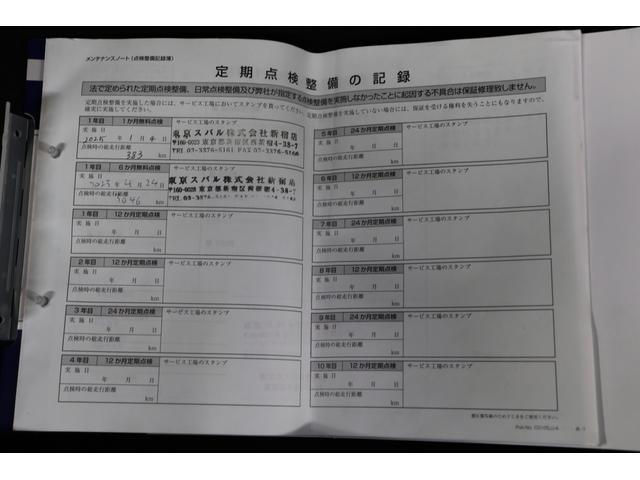 メンテナンスノート(点検整備記録簿)
定期点検整備の記録
法で定められた定期点検整備、日常点検整備及び弊社が指定する点検整備を実施しなかったことに起因する不具合は保証修理致しません。
定期点検整備を実施した場合には、サービス工場においてスタンプを貰ってください。定期点検整備を実施していない場合には、保証を受ける権利を失うこともなりますので、
確実に実施してください。
1年目 1か月無料点検 サービス工場のスタンプ
実施日
2025年1月4日
点検時の総走行距離
383 km
東京スバル株式会社新宿店
〒160-0023 東京都新宿区西新宿4-38-7
TEL 03-3376-5161 FAX 03-3376-5168
1年目 6か月点検 サービス工場のスタンプ
実施日
2025年 月24日
点検時の総走行距離
km
東京スバル株式会社新宿店
〒160-0023 東京都新宿区西新宿4-38-7
1年目 12か月定期点検 サービス工場のスタンプ
実施日
年 月 日
点検時の総走行距離
km
2年目 12か月定期点検 サービス工場のスタンプ
実施日
年 月 日
点検時の総走行距離
km
3年目 24か月定期点検 サービス工場のスタンプ
実施日
年 月 日
点検時の総走行距離
km
4年目 12か月定期点検 サービス工場のスタンプ
実施日
年 月 日
点検時の総走行距離
km
5年目 24か月定期点検 サービス工場のスタンプ
実施日
年 月 日
点検時の総走行距離
km
6年目 12か月定期点検 サービス工場のスタンプ
実施日
年 月 日
点検時の総走行距離
km
7年目 24か月定期点検 サービス工場のスタンプ
実施日
年 月 日
点検時の総走行距離
km
8年目 12か月定期点検 サービス工場のスタンプ
実施日
年 月 日
点検時の総走行距離
km
9年目 24か月定期点検 サービス工場のスタンプ
実施日
年 月 日
点検時の総走行距離
km
10年目 12か月定期点検 サービス工場のスタンプ
実施日
年 月 日
点検時の総走行距離
km